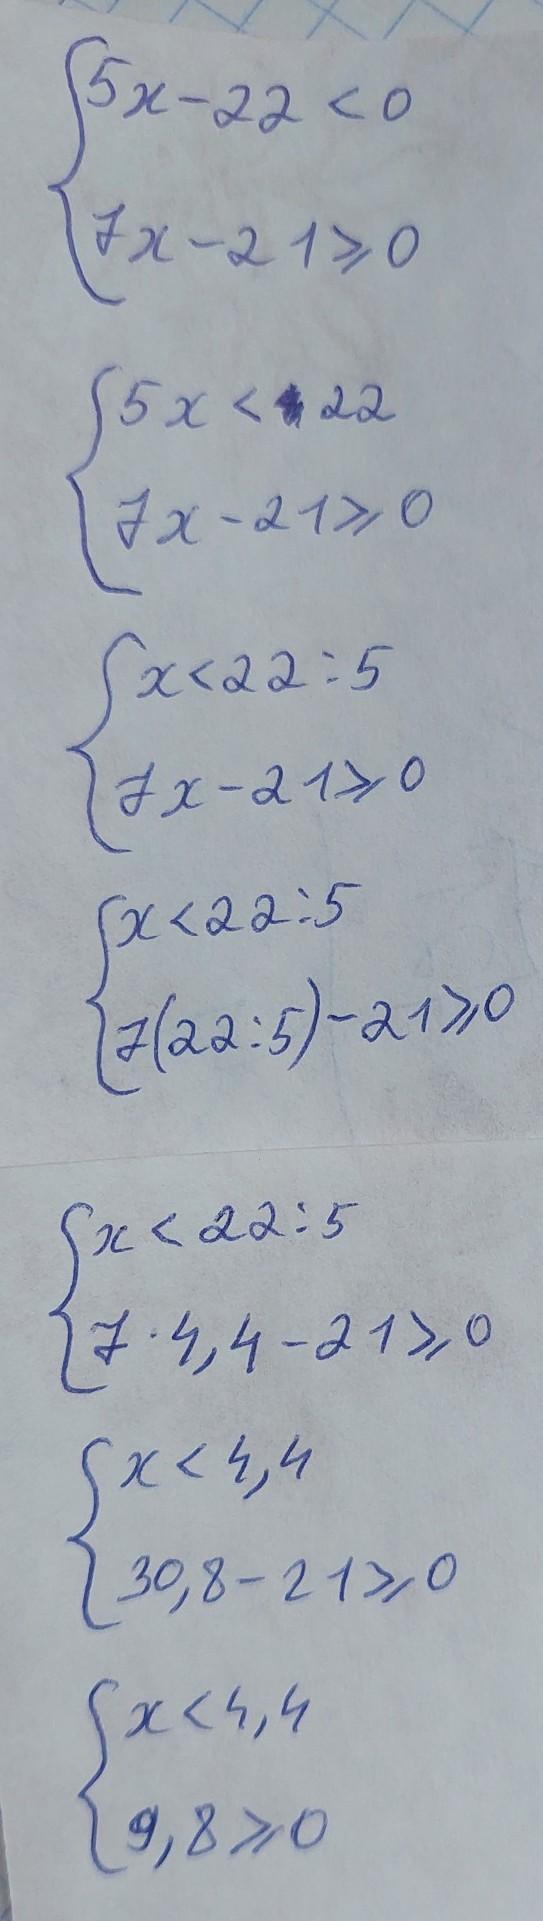 5x-22<0
7x-21⩾0
5x<22
7x-21⩾0
x<22:5
7x-21⩾0
x<22:5
7(22:5)-21⩾0
x<22:5
7·4,4-21⩾0
x<4,4
30,8-21⩾0
x<4,4
9,8⩾0